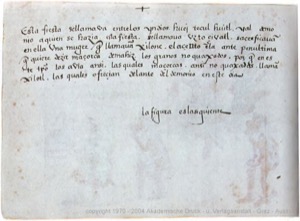 Esta fiesta se llamava entre los yndios huei tecul huitl. y al demo
nio a quien se hazia esta fiesta. se llamava
en ella una muger q llamavan Xilone. el acento en la ante penultima
q quiere dezir maçorca de mahiz los granos no quaxados. por q en es
te tpo los avia ansi. las quales maçorcas ansi no quaxadas. llama
xilotl. las quales ofrecian delante del demonio en este dia
la figura es la siguiente
copyright 1979 - 2004 Akademische Druck- u. Verlagsanstalt - Graz - Austria